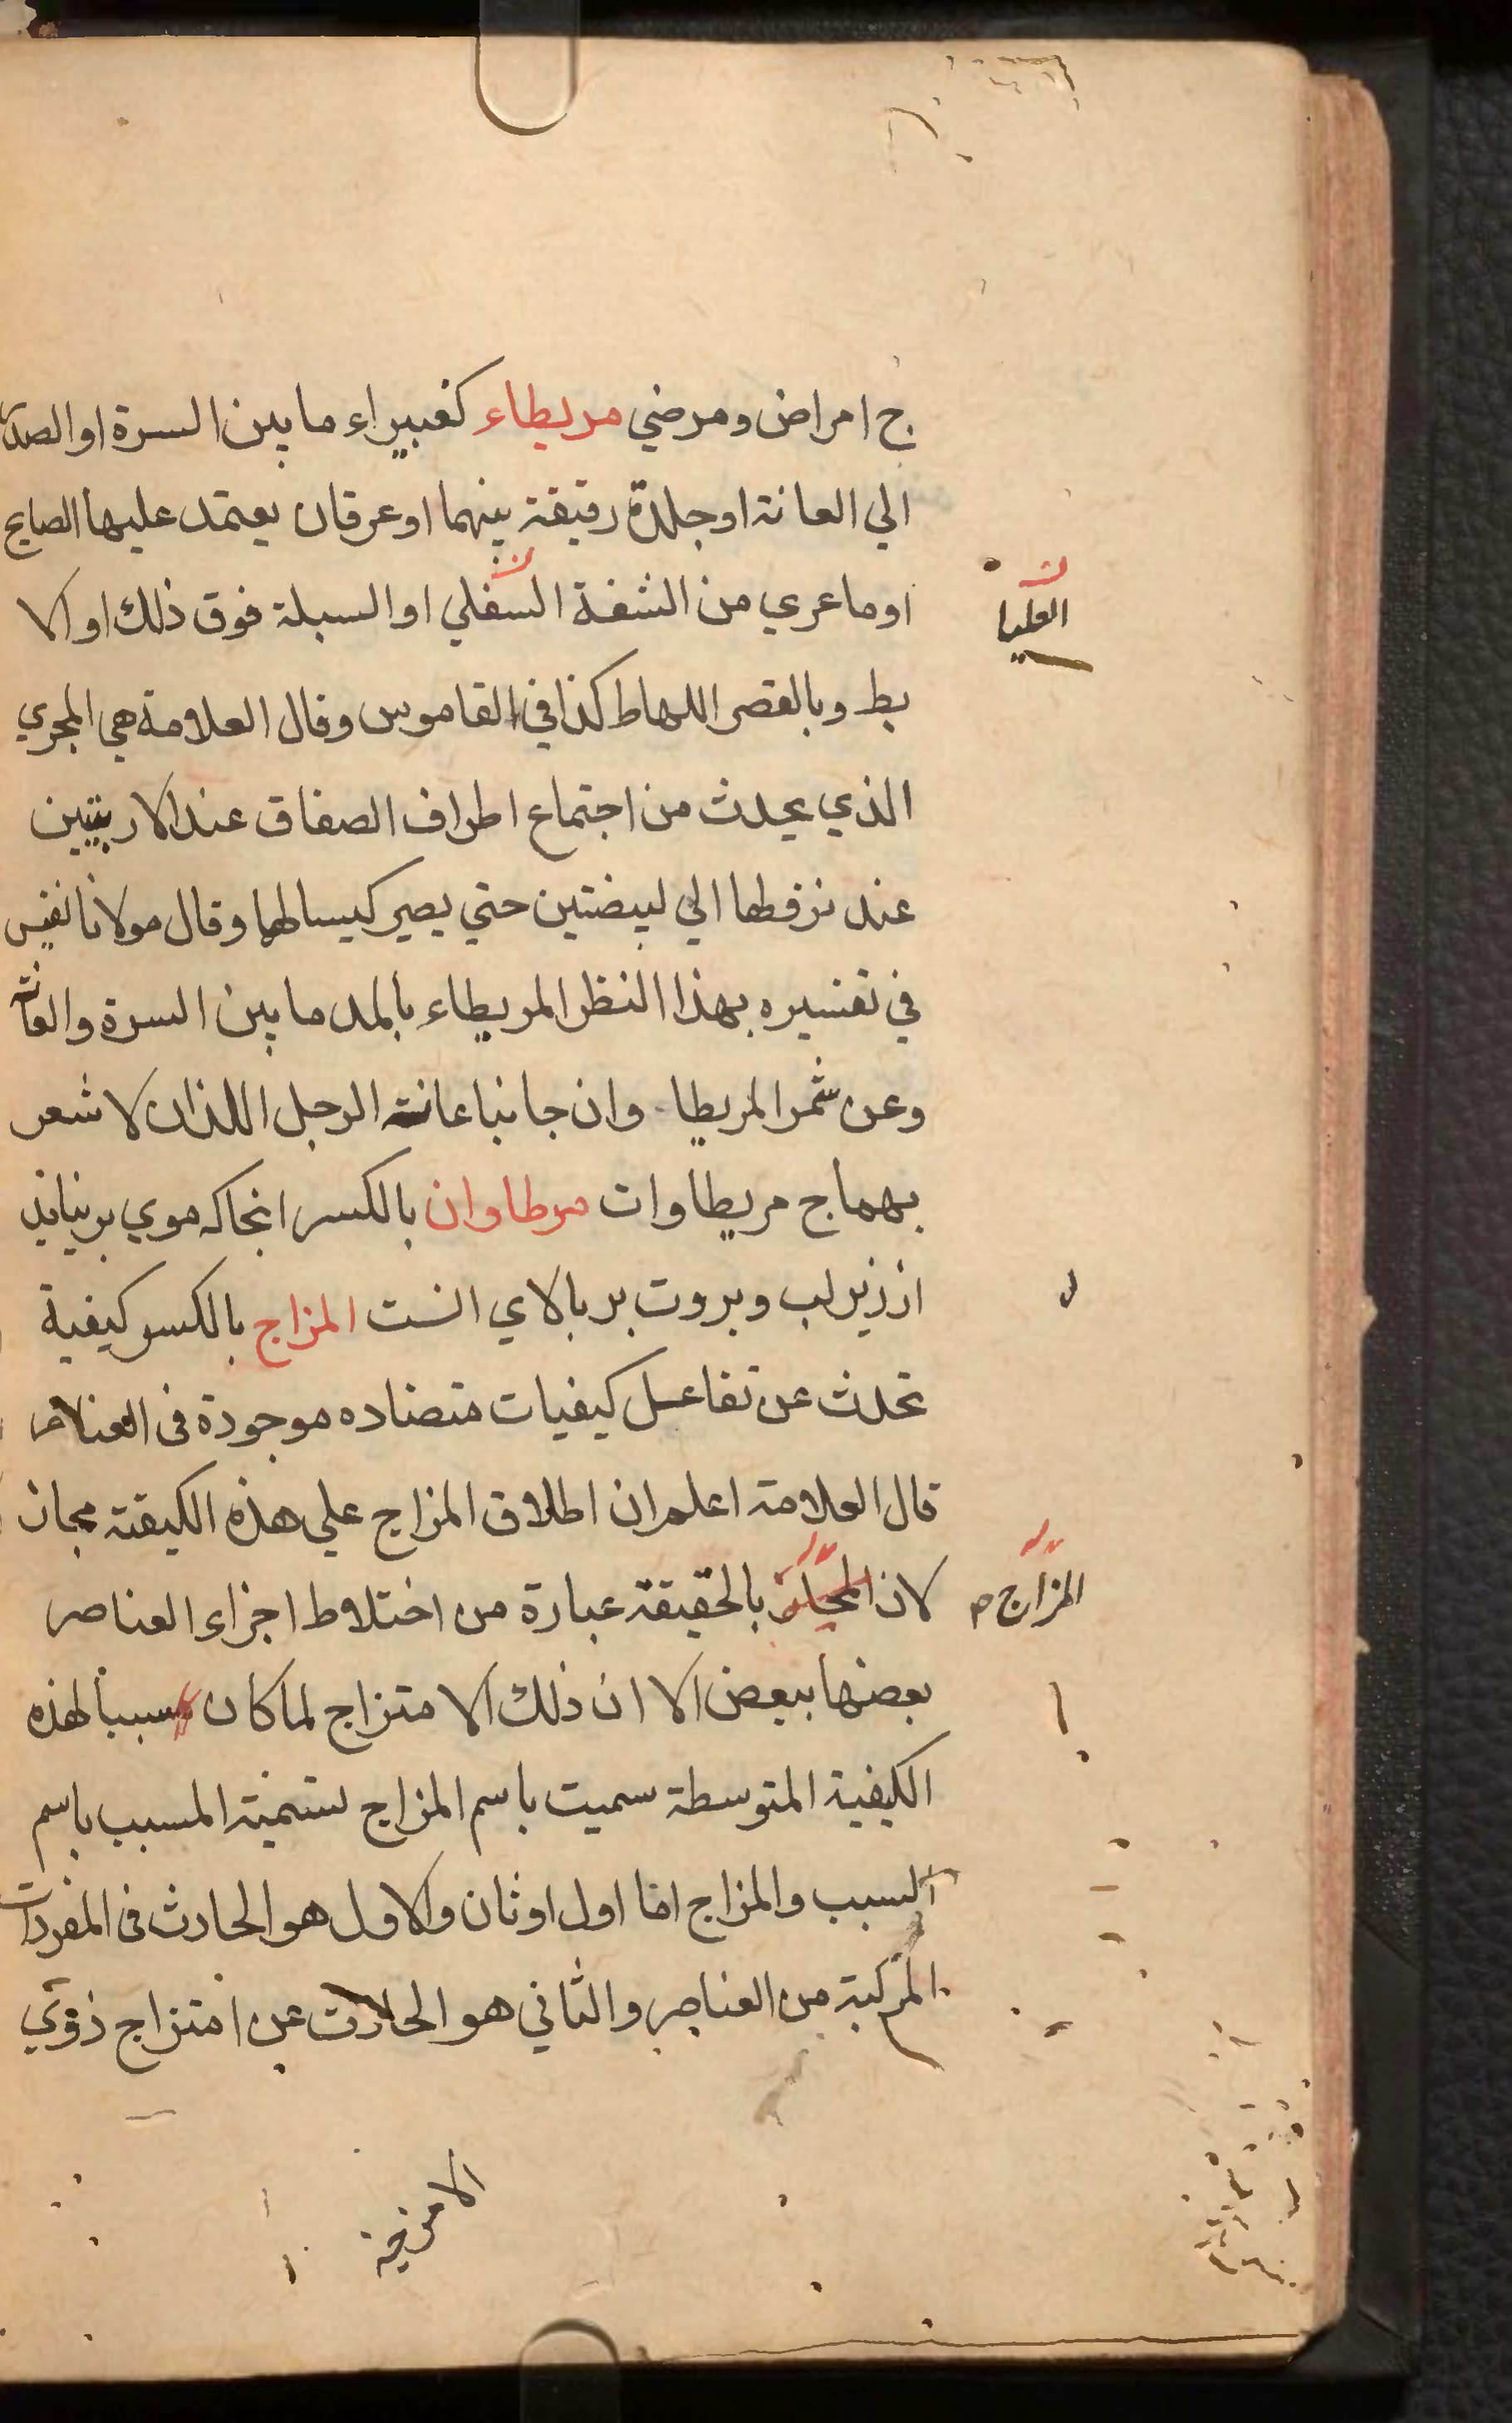 ج امراض ومرضي مريطاء كغبيراء ما بين السرة او الصدر
الي العانة او جلدة رقيقة بينهما او عرقان يعتمد عليها الصايح
او ما عري من الشفة السفلي او السبلة فوق ذلك او الا
العليا
بط وبالقصر اللهاط كذا في القاموس وقال العلامة هي المجري
الذي يحدث من اجتماع اطراف الصفاق عند الاربيتين
عند نزفطها الي لبيضتين حتي يصير كيسا لهما وقال مولانا نفيس
في تفسيره بهذا النظر المريطاء بالمد ما بين السرة والعانة
وعن شمر المريطا وان جانبا عانة الرجل اللذان لا شعر
بهما ج مريطاوات مرطاوان بالكسر انجاكه موي بر نيايد
از زير لب وبروت بر بالاي انست المزاج بالكسر كيفية
تحدث عن تفاعل كيفيات متضاده موجودة في العناصر
قال العلامة اعلم ان اطلاق المزاج علي هذه الكيفته مجاز
لان بالحقيقة عبارة من اختلاط اجزاء العناصر
المزاج م
بعضها ببعض الا ان ذلك الامتزاج لما كان سببا لهذه
الكيفية المتوسطة سميت باسم المزاج تسمية المسبب باسم
السبب والمزاج اما اول او ثان والاول هو الحادث في المفردات
المركبة من العناصر والثاني هو الحادث عن امتزاج ذوي
الامزجة